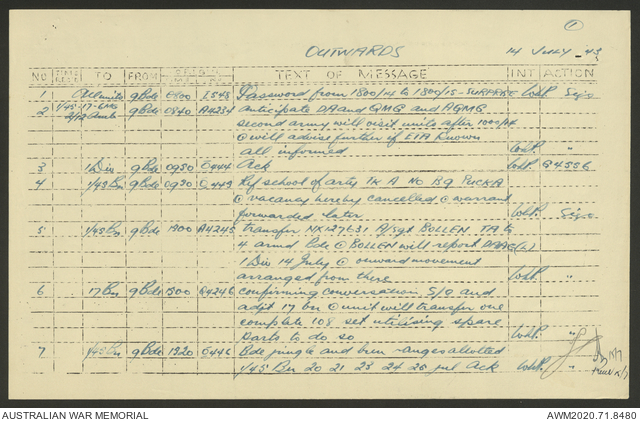 1
OUTWARDS 14 JULY -43
NO TO FROM TEXT OF MESSAGE INT ACTION
1 All units 9 Bde 0800 I543 Password from 1800/14 to 1800/15 - SURPRISE WhP. Sigs
2 1/45-17-6MG 9 Bde 0840 A4234 anticipate DA and QMG and AQMG
2/12 Amb second army will visit units after 1000/14
@ will advise further if ETA known
all informed WhP. "
3 1 Div 9 Bde 0930 Q444 Ack WhP. G4556
4 1/45 Bn 9 Bde 0930 Q449 Ref school of arty TK A No Bg PUCKA
@ vacancy hereby cancelled @ warrant
forwarded later WhP. Sigs
5 1/45 Bn 9 Bde 1200 A4245 transfer NX127631 A/Sgt BOLLEN TA to
4 armd Bde @ BOLLEN will report DAAG(L)
1 Div 14 July @ onward movement
arranged from there WhP. "
6 17 Bn 9 Bde 1500 G4246 confirming conversation S/O and
adjt 17 bn @ unit will transfer one
complete 108 set utilising spare
parts to do so WhP. "
7 1/45 Bn 9 Bde 1920 G446 Bde jungle and bren ranges allotted
1/45 Bn 20 21 23 24 26 jul Ack WhP. "
AUSTRALIAN WAR MEMORIAL AWM2020.71.8480